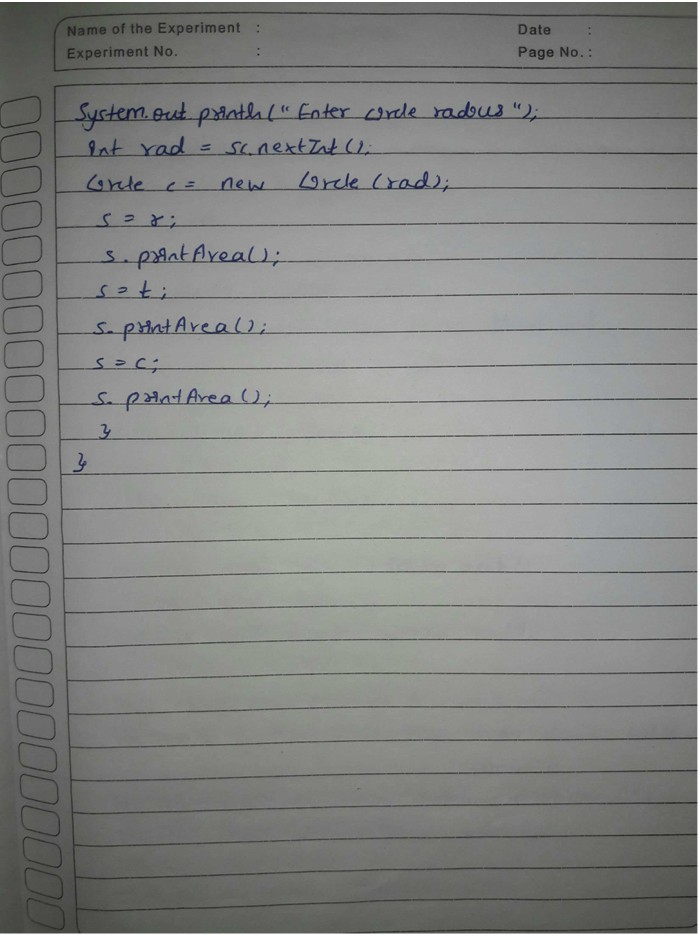 Name of the Experiment :
Date :
Experiment No. :
Page No. :
System.out println("Enter circle radius");
int rad = sc.nextInt();
Circle c = new Circle(rad);
s = r;
s.printArea();
s = t;
s.printArea();
s = c;
s.printArea();
}
}